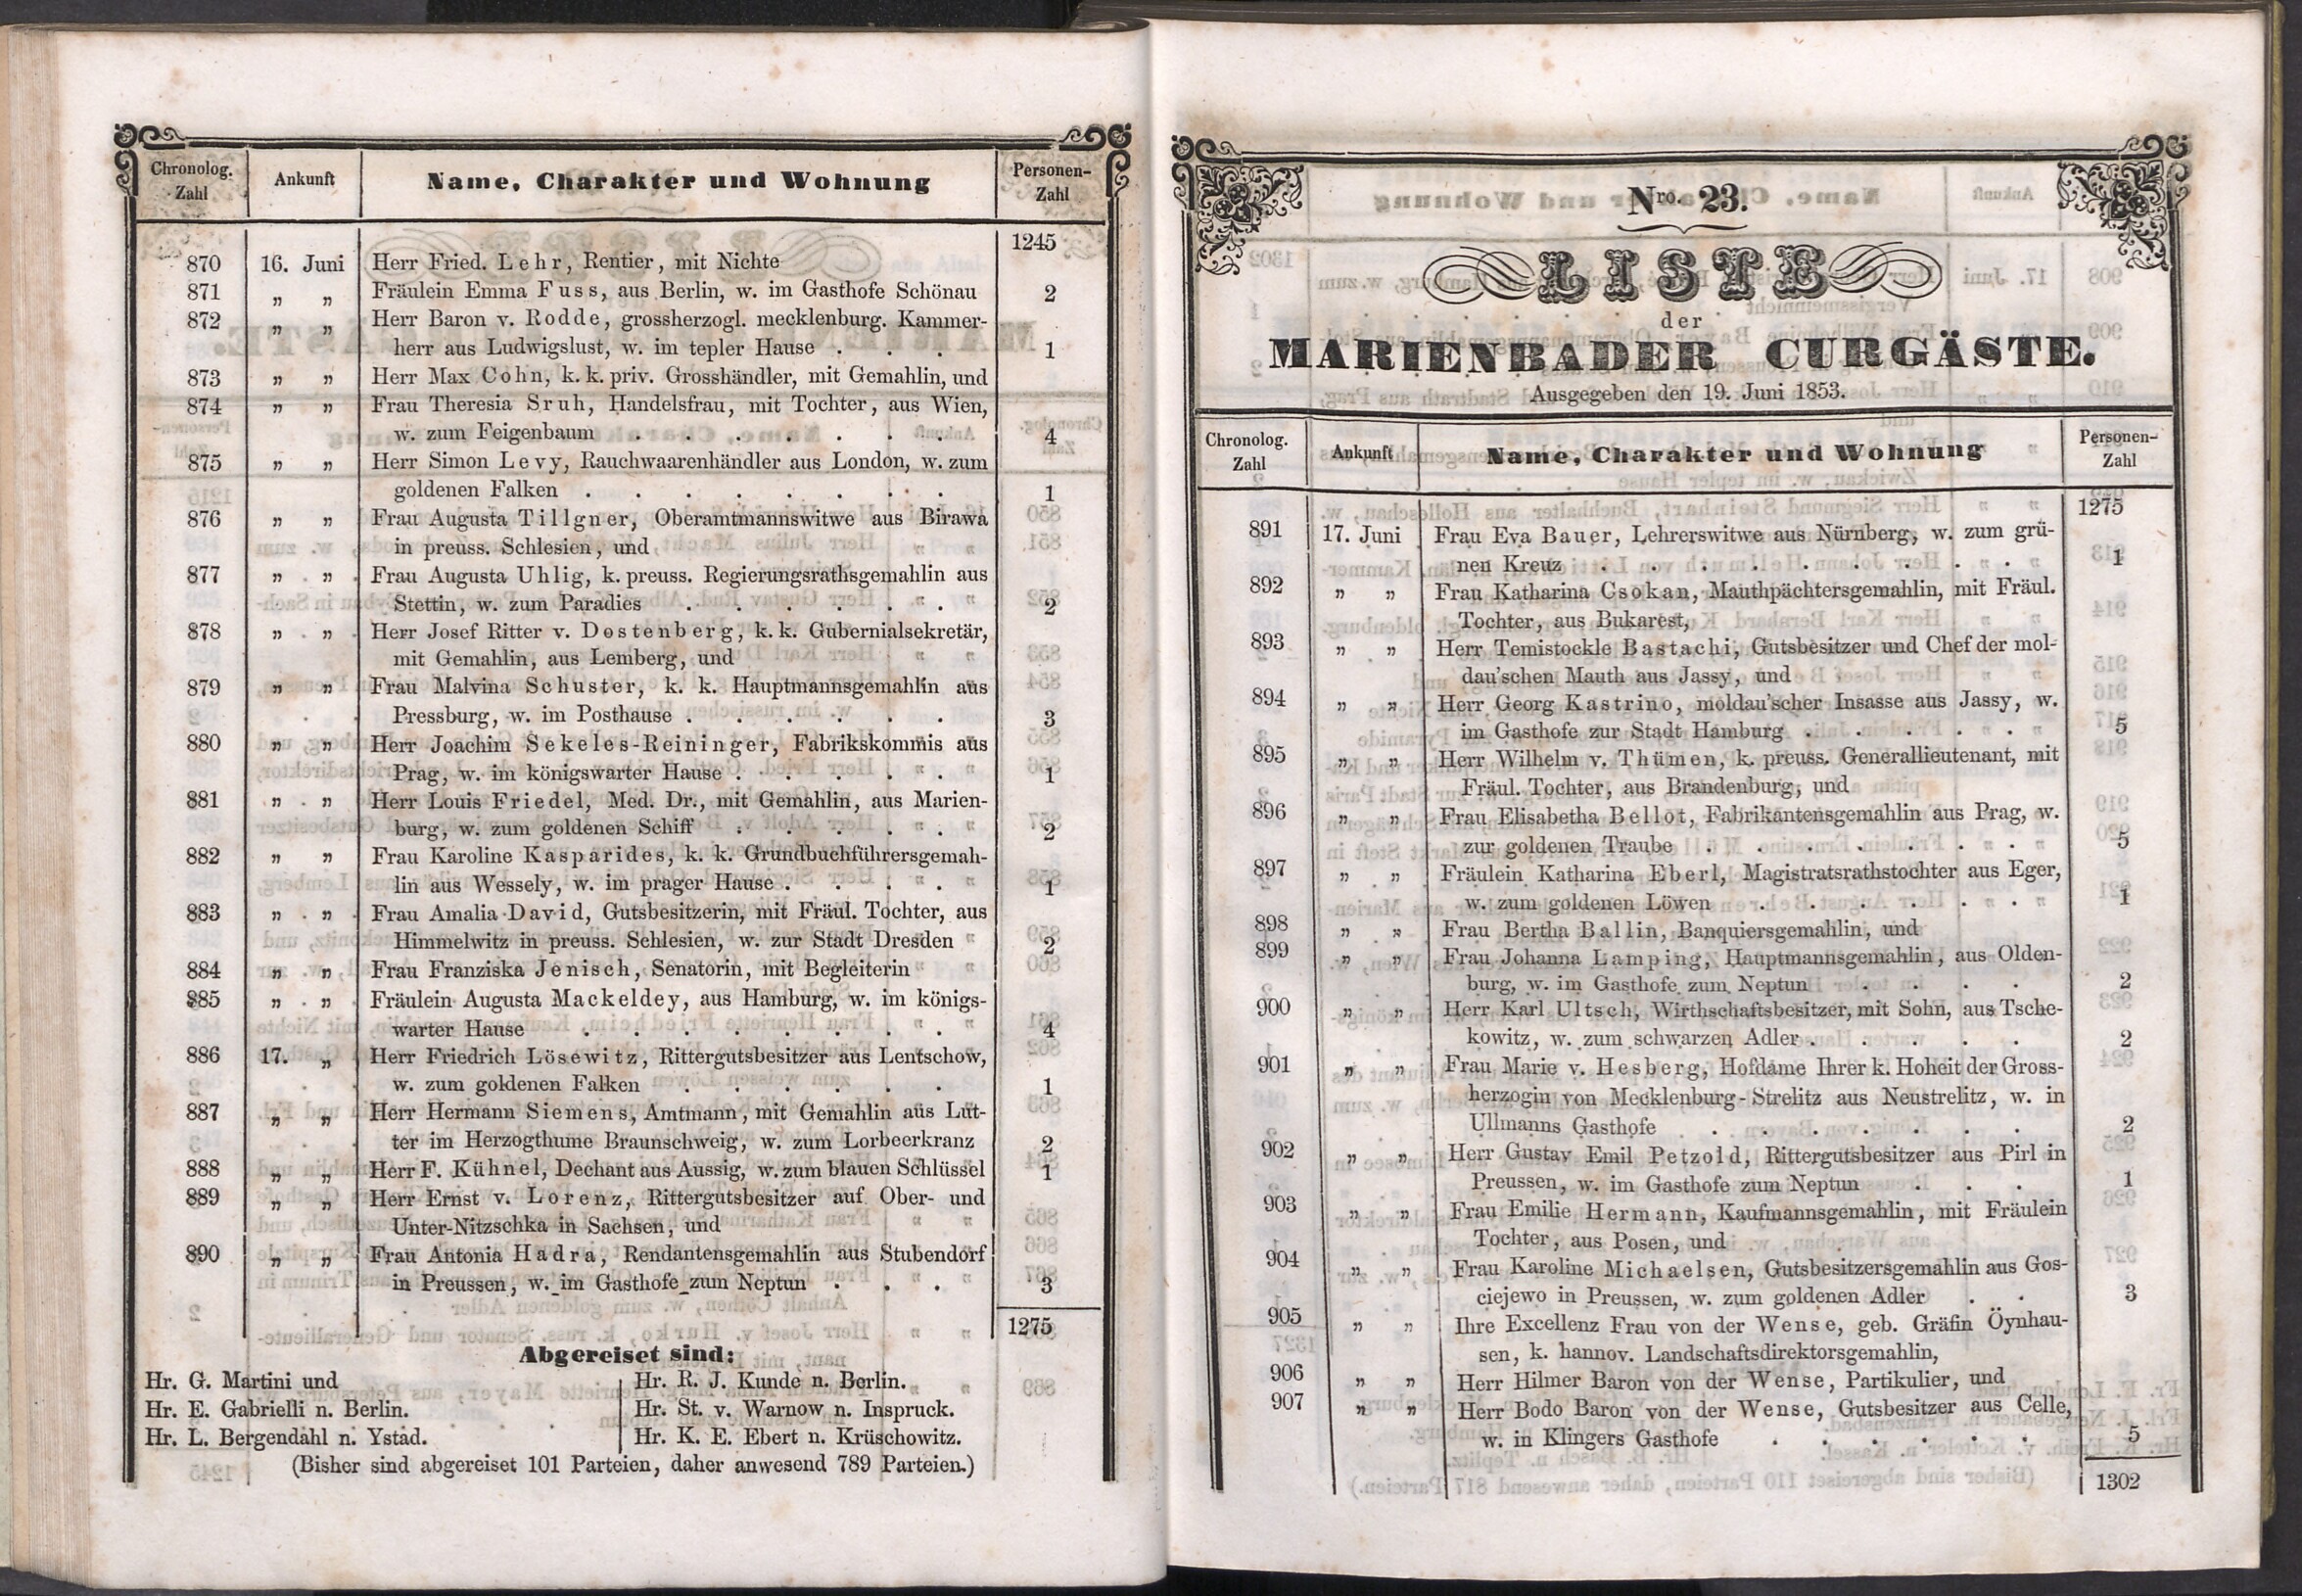 Chronolog. Zahl
Ankunft
Name, Charakter und Wohnung
Personen-Zahl
1245
870 16. Juni Herr Fried. Lehr, Rentier, mit Nichte
871 „ „ Fräulein Emma Fuss, aus Berlin, w. im Gasthofe Schönau 2
872 „ „ Herr Baron v. Rodde, grossherzogl. mecklenburg. Kammer-
herr aus Ludwigslust, w. im tepler Hause . . . 1
873 „ „ Herr Max Cohn, k. k. priv. Grosshändler, mit Gemahlin, und
874 „ „ Frau Theresia Sruh, Handelsfrau, mit Tochter, aus Wien,
w. zum Feigenbaum . . . . . . . 4
875 „ „ Herr Simon Levy, Rauchwaarenhändler aus London, w. zum
goldenen Falken . . . . . . . . 1
876 „ „ Frau Augusta Tillgner, Oberamtmannswitwe aus Birawa
in preuss. Schlesien, und
877 „ „ Frau Augusta Uhlig, k. preuss. Regierungsrathsgemahlin aus
Stettin, w. zum Paradies . . . . . . 2
878 „ „ Herr Josef Ritter v. Dostenberg, k. k. Gubernialsekretär,
mit Gemahlin, aus Lemberg, und
879 „ „ Frau Malvina Schuster, k. k. Hauptmannsgemahlin aus
Pressburg, w. im Posthause . . . . . . 3
880 „ „ Herr Joachim Sekeles-Reininger, Fabrikskommis aus
Prag, w. im königswarter Hause . . . . . 1
881 „ „ Herr Louis Friedel, Med. Dr., mit Gemahlin, aus Marien-
burg, w. zum goldenen Schiff . . . . . 2
882 „ „ Frau Karoline Kasparides, k. k. Grundbuchführersgemah-
lin aus Wessely, w. im prager Hause . . . . 1
883 „ „ Frau Amalia David, Gutsbesitzerin, mit Fräul. Tochter, aus
Himmelwitz in preuss. Schlesien, w. zur Stadt Dresden 2
884 „ „ Frau Franziska Jenisch, Senatorin, mit Begleiterin
885 „ „ Fräulein Augusta Mackeldey, aus Hamburg, w. im königs-
warter Hause . . . . . . . . 4
886 17. „ Herr Friedrich Lösewitz, Rittergutsbesitzer aus Lentschow,
w. zum goldenen Falken . . . . . . 1
887 „ „ Herr Hermann Siemens, Amtmann, mit Gemahlin aus Lut-
ter im Herzogthume Braunschweig, w. zum Lorbeerkranz 2
888 „ „ Herr F. Kühnel, Dechant aus Aussig, w. zum blauen Schlüssel 1
889 „ „ Herr Ernst v. Lorenz, Rittergutsbesitzer auf Ober- und
Unter-Nitzschka in Sachsen, und
890 „ „ Frau Antonia Hadra, Rendantensgemahlin aus Stubendorf
in Preussen, w. im Gasthofe zum Neptun . . . 3
1275
Abgereiset sind:
Hr. G. Martini und
Hr. E. Gabrielli n. Berlin.
Hr. L. Bergendahl n. Ystad.
Hr. R. J. Kunde n. Berlin.
Hr. St. v. Warnow n. Inspruck.
Hr. K. E. Ebert n. Krüschowitz.
(Bisher sind abgereiset 101 Parteien, daher anwesend 789 Parteien.)
Nro. 23.
LISTE
der
MARIENBADER CURGÄSTE.
Ausgegeben den 19. Juni 1853.
Chronolog. Zahl
Ankunft
Name, Charakter und Wohnung
Personen-Zahl
1275
891 17. Juni Frau Eva Bauer, Lehrerswitwe aus Nürnberg, w. zum grü-
nen Kreuz . . . . . . . . 1
892 „ „ Frau Katharina Csokan, Mauthpächtersgemahlin, mit Fräul.
Tochter, aus Bukarest,
893 „ „ Herr Temistockle Bastachi, Gutsbesitzer und Chef der mol-
dau'schen Mauth aus Jassy, und
894 „ „ Herr Georg Kastrino, moldau'scher Insasse aus Jassy, w.
im Gasthofe zur Stadt Hamburg . . . . . 5
895 „ „ Herr Wilhelm v. Thümen, k. preuss. Generallieutenant, mit
Fräul. Tochter, aus Brandenburg, und
896 „ „ Frau Elisabetha Bellot, Fabrikantensgemahlin aus Prag, w.
zur goldenen Traube . . . . . . . 5
897 „ „ Fräulein Katharina Eberl, Magistratsrathstochter aus Eger,
w. zum goldenen Löwen . . . . . . 1
898 „ „ Frau Bertha Ballin, Banquiersgemahlin, und
899 „ „ Frau Johanna Lamping, Hauptmannsgemahlin, aus Olden-
burg, w. im Gasthofe zum Neptun . . . . 2
900 „ „ Herr Karl Ultsch, Wirthschaftsbesitzer, mit Sohn, aus Tsche-
kowitz, w. zum schwarzen Adler . . . . . 2
901 „ „ Frau Marie v. Hesberg, Hofdame Ihrer k. Hoheit der Gross-
herzogin von Mecklenburg-Strelitz aus Neustrelitz, w. in
Ullmanns Gasthofe . . . . . . . 2
902 „ „ Herr Gustav Emil Petzold, Rittergutsbesitzer aus Pirl in
Preussen, w. im Gasthofe zum Neptun . . . 1
903 „ „ Frau Emilie Hermann, Kaufmannsgemahlin, mit Fräulein
Tochter, aus Posen, und
904 „ „ Frau Karoline Michaelsen, Gutsbesitzersgemahlin aus Gos-
ciejewo in Preussen, w. zum goldenen Adler . . 3
905 „ „ Ihre Excellenz Frau von der Wense, geb. Gräfin Öynhau-
sen, k. hannov. Landschaftsdirektorsgemahlin,
906 „ „ Herr Hilmer Baron von der Wense, Partikulier, und
907 „ „ Herr Bodo Baron von der Wense, Gutsbesitzer aus Celle,
w. in Klingers Gasthofe . . . . . . 5
1302